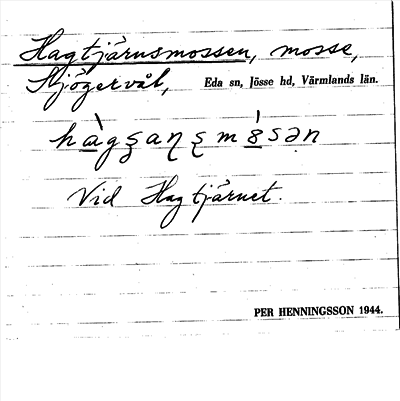 Hagtjärnsmossen, mosse,
Skjögervål, Eda sn, Jösse hd, Värmlands län.
Vid Hagtjärnet.
PER HENNINGSSON 1944.